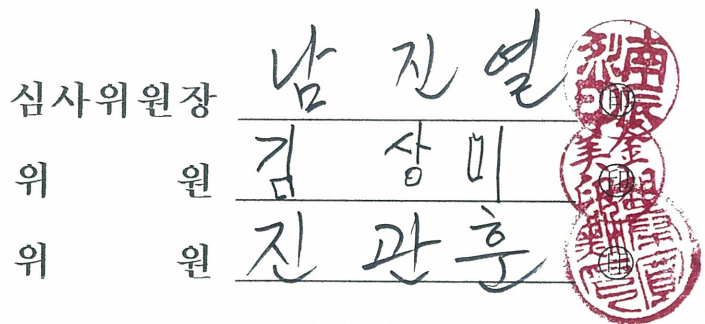 심사위원장 남 진 열 ㊞
위 원 김 상 미 ㊞
위 원 진 관 훈 ㊞